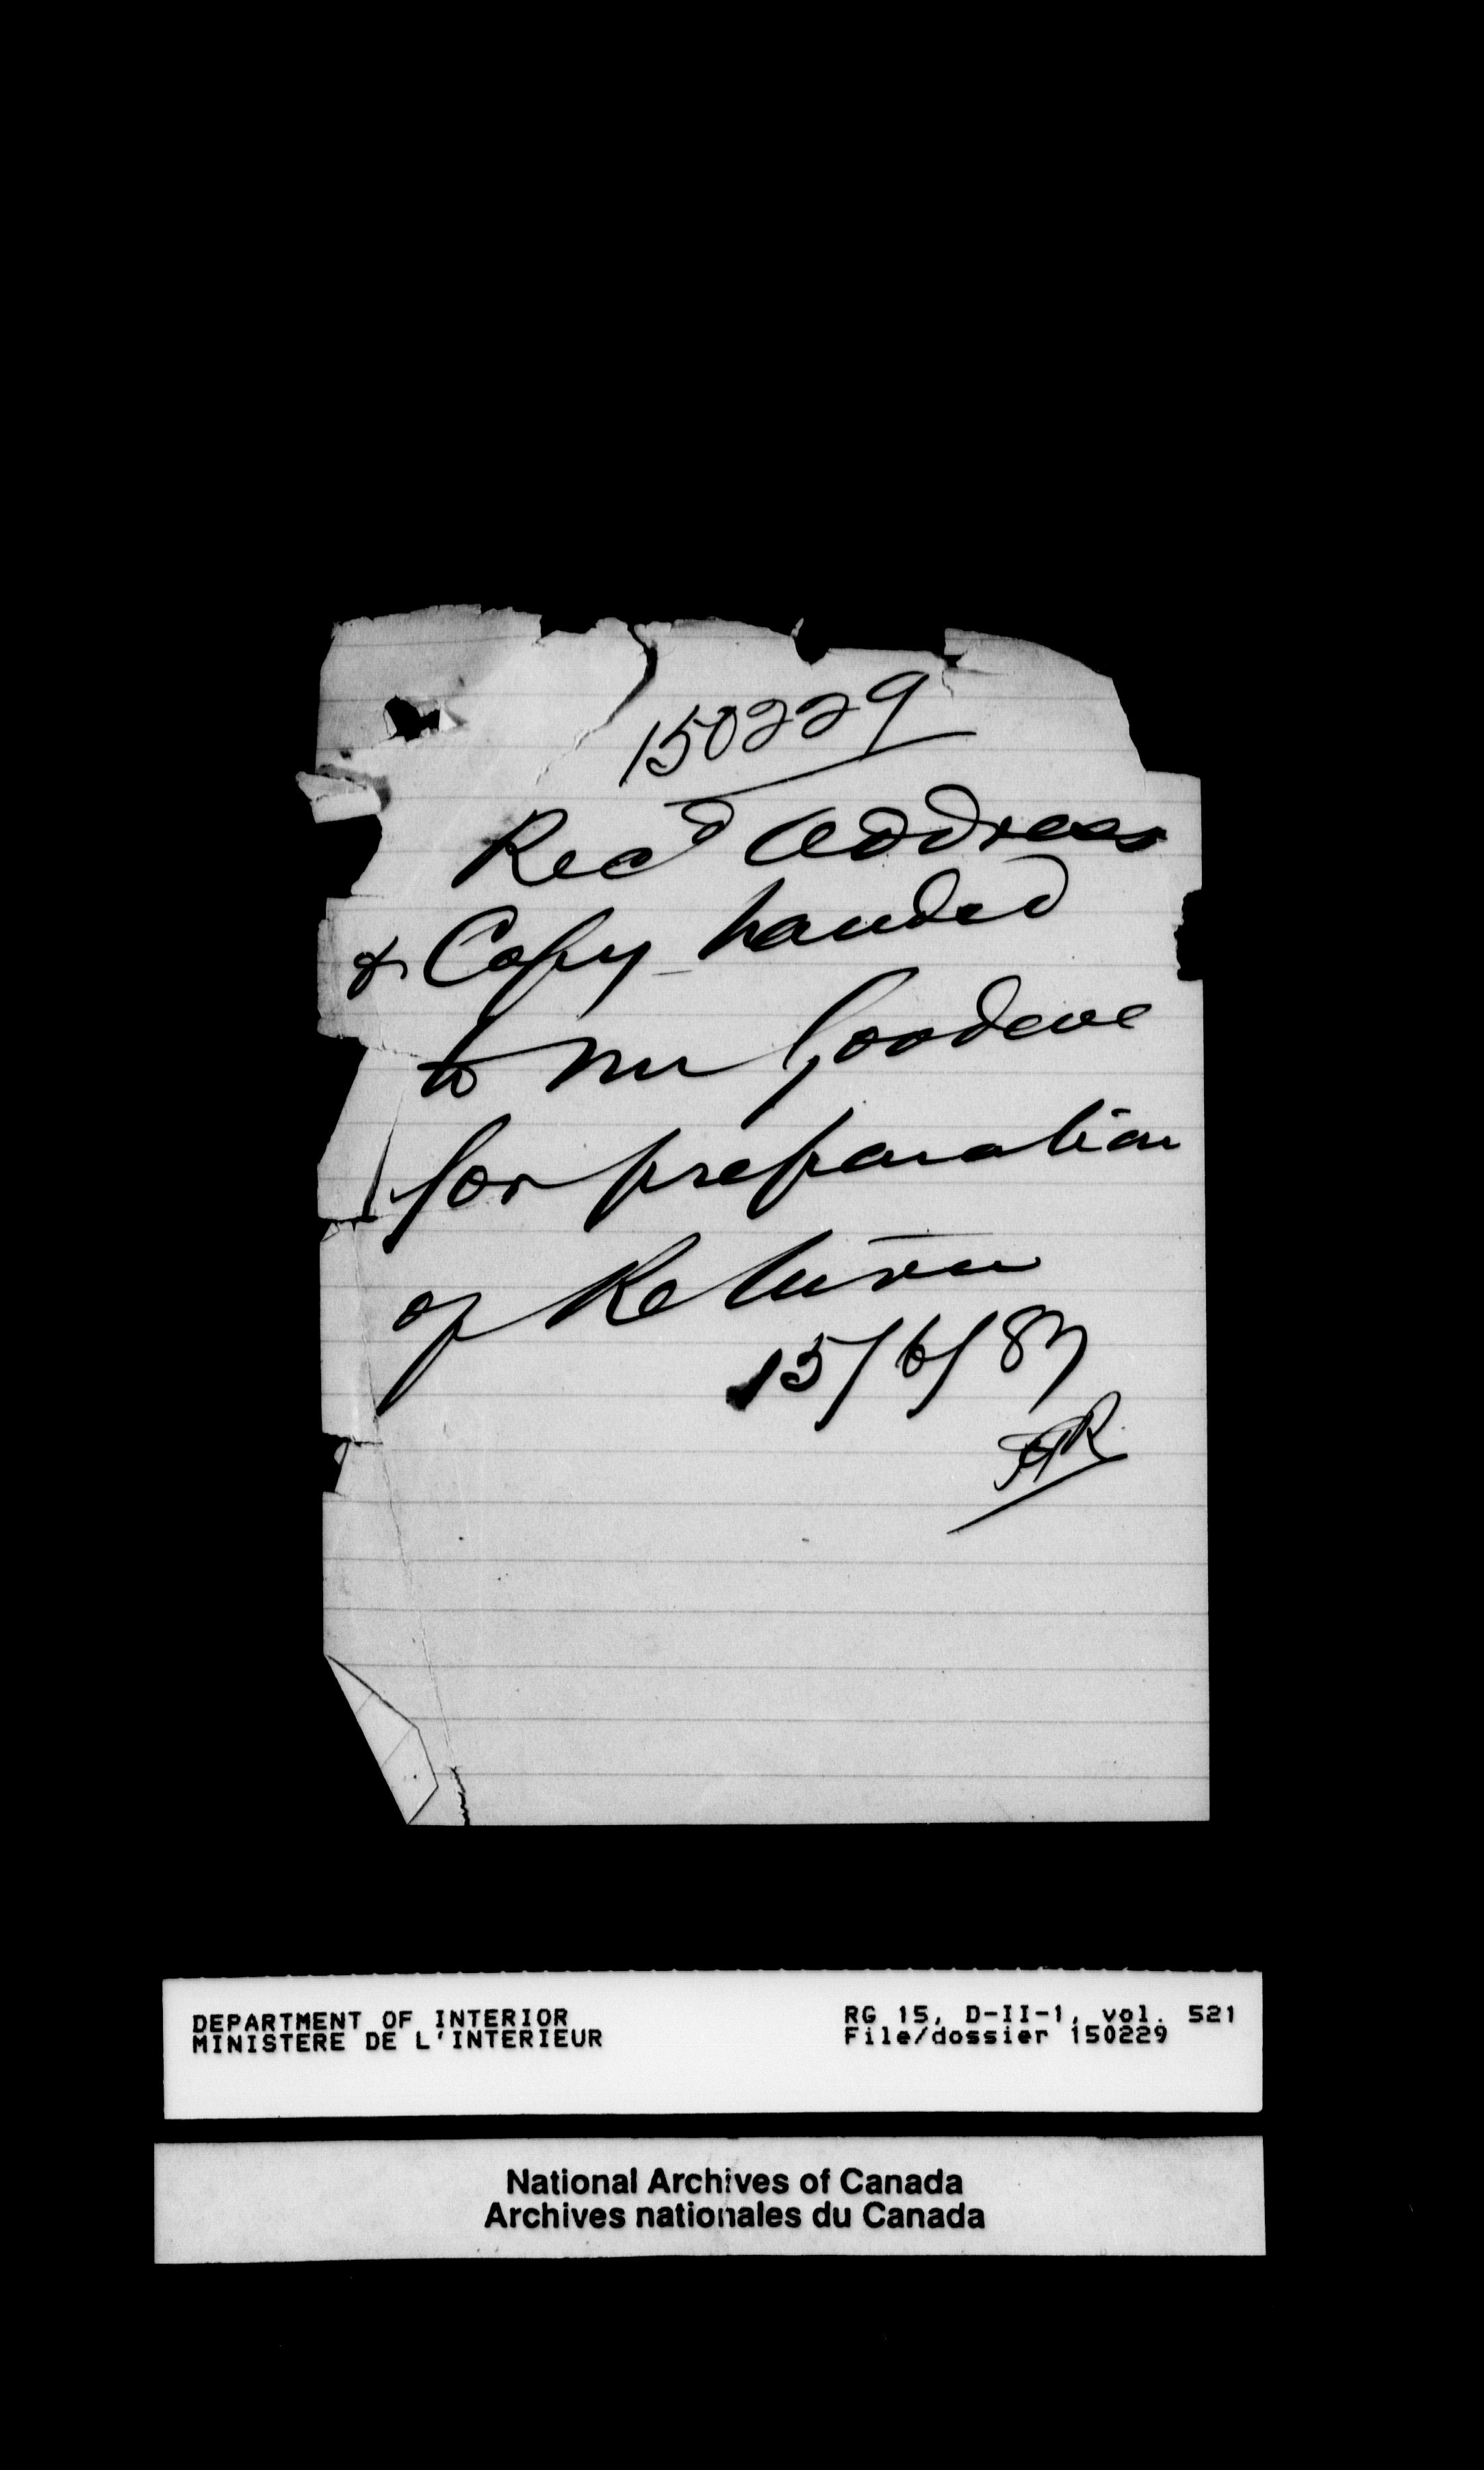 150229
Recd Address
& Copy handed
to Mr Goodeve
for preparation
of Return
15/6/87
DEPARTMENT OF INTERIOR
MINISTERE DE L'INTERIEUR
RG 15, D-II-1, vol. 521
File/dossier 150229
National Archives of Canada
Archives nationales du Canada